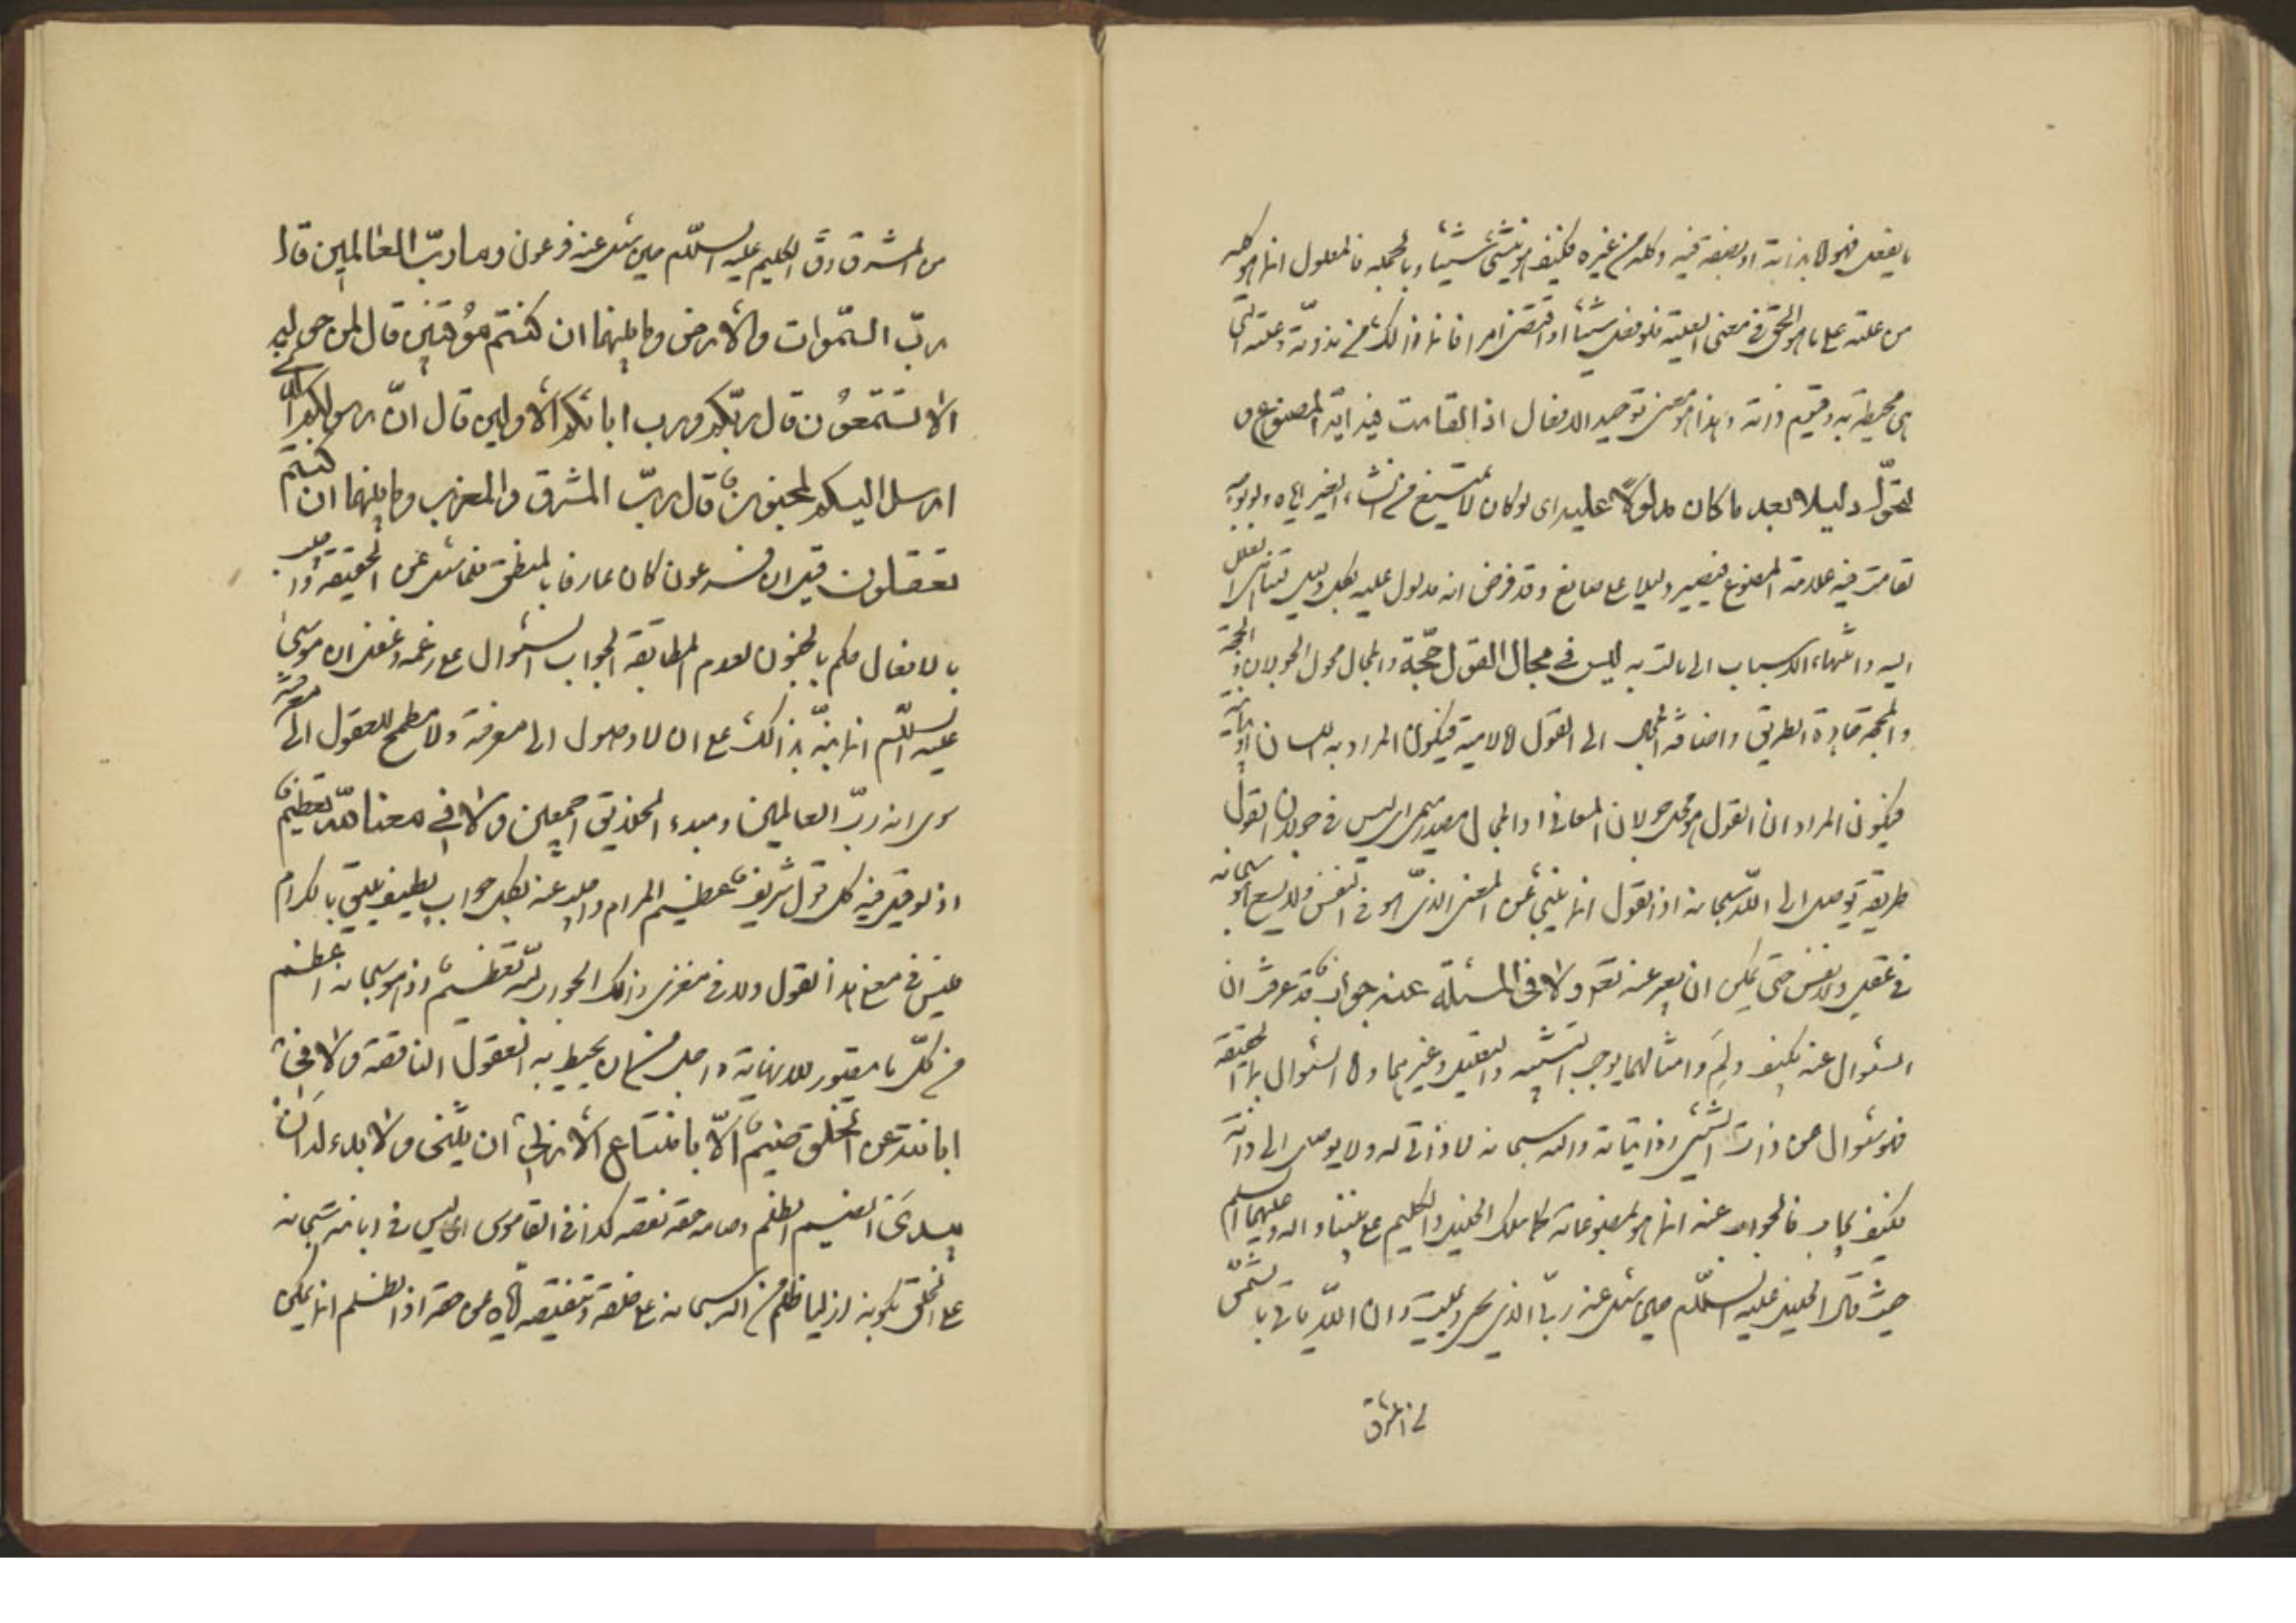 ما يفعل فهو اما بذاته او بصفة فيه وكله من غيره فكيف هو ينشئ شيئا وبالجملة فالمعلول انما هو كله
من علته على ما هو الحق في معنى العلية فلو فعل شيئا او اقتضى امرا فانما ذلك من مذوته وعلته التي
هي محيطة به وقيوم ذاته وهذا هو معنى توحيد الافعال اذا لقامت فيه اية المصنوع و
لتحول دليلا بعد ما كان مدلولا عليه اى لو كان لا يمتنع من انشاء الغير اياه
لقامت فيه علامة المصنوع فيصير دليلا على صانع وقد فرض انه مدلول عليه لكل دليل
اليه وانتهاء الاسباب الى بالتر به ليس في مجال القول حجة والمجال محل الجولان و
والحجة جادة الطريق واضافة المجال الى القول لامية فيكون المراد به اللسان او بيانية
فيكون المراد ان القول هو محل جولان المعاني او المجال مصدر ميمي اى ليس في جولان القول
طريقة توصل الى الله سبحانه اذ القول انما ينبئ عن المعنى الذي هو في النفس ولا يسع هو سبحانه
في عقل ولا نفس حتى يمكن ان يعبر عنه بقول ولا في المسئلة عنه جواب قد عرفت ان
السئوال عنه بكيف ولم وامثالهما يوجب التشبيه والتعليل وغيرهما واما السئوال بما الحقيقة
فهو سئوال عن ذات الشئ وذاتياته والله سبحانه لا ذاتي له ولا يوصل الى ذاته
بكيف بما فالجواب عنه انما هو بمصنوعاته كما سلك الخليل والكليم على نبينا واله وعليهما السلم
حيث قال الخليل عليه السلم حين سئل عنه ربي الذي يحيى ويميت وان الله ياتي بالشمس
من المشرق
من المشرق وق الكليم عليه السلم حين سئل عنه فرعون وما رب العالمين قال
رب السموات والارض وما بينهما ان كنتم موقنين قال لمن حوله
الا تستمعون قال ربكم ورب ابائكم الاولين قال ان رسولكم الذي
ارسل اليكم لمجنون قال رب المشرق والمغرب وما بينهما ان كنتم
تعقلون قيل ان فرعون كان عارفا بالمنطق فلما سئل عن الحقيقة واجيب
بالافعال حكم بالجنون لعدم المطابقة الجواب السئوال على زعمه وغفل ان موسى
عليه السلم انما نبه بذلك على ان لا وصول الى معرفته ولا مطمح للعقول الى معرفته
سوى انه رب العالمين ومبدء الخلايق اجمعين ولا في معناه لله تعظيم
اذ لو قيل فيه كل قول شريف عظيم المرام واجيب عنه بكل جواب لطيف يليق بالكرام
فليس في معنى هذا القول ولا في مغزى ذلك الجواب لله تعظيم اذ هو سبحانه اعظم
من كل ما يتصور للانهاية واجل من ان يحيط به العقول الناقصة ولا في
ابانته عن الخلق ضيم الا بامتناع الازلي ان يثنى ولا بدء له ان
يبدى الضيم الظلم وضامه حقه نقصه كذا في القاموس اى ليس في ابانته سبحانه
عن الخلق بكونه ازليا ظلم من الله سبحانه على خلقه وتنقيصه اياه من حقه اذ الظلم انما يمكن